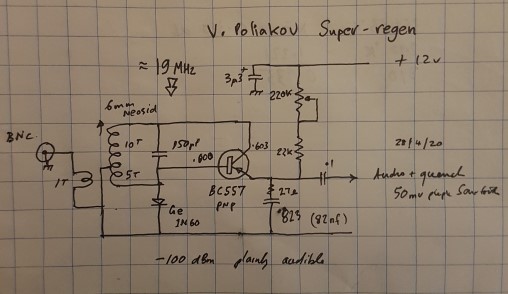 V. Poliakov Super-regen
≈ 19 MHz
+ 12v
3µ3
+
220K
6mm
Neosid
BNC
10T
150pf
.603
.600
22K
20/4/20
.1
1T
5T
BC557
PNP
27Ω
Audio + quench
Ge
1N60
823 (82nf)
50mv p-kp
-100 dBm plainly audible